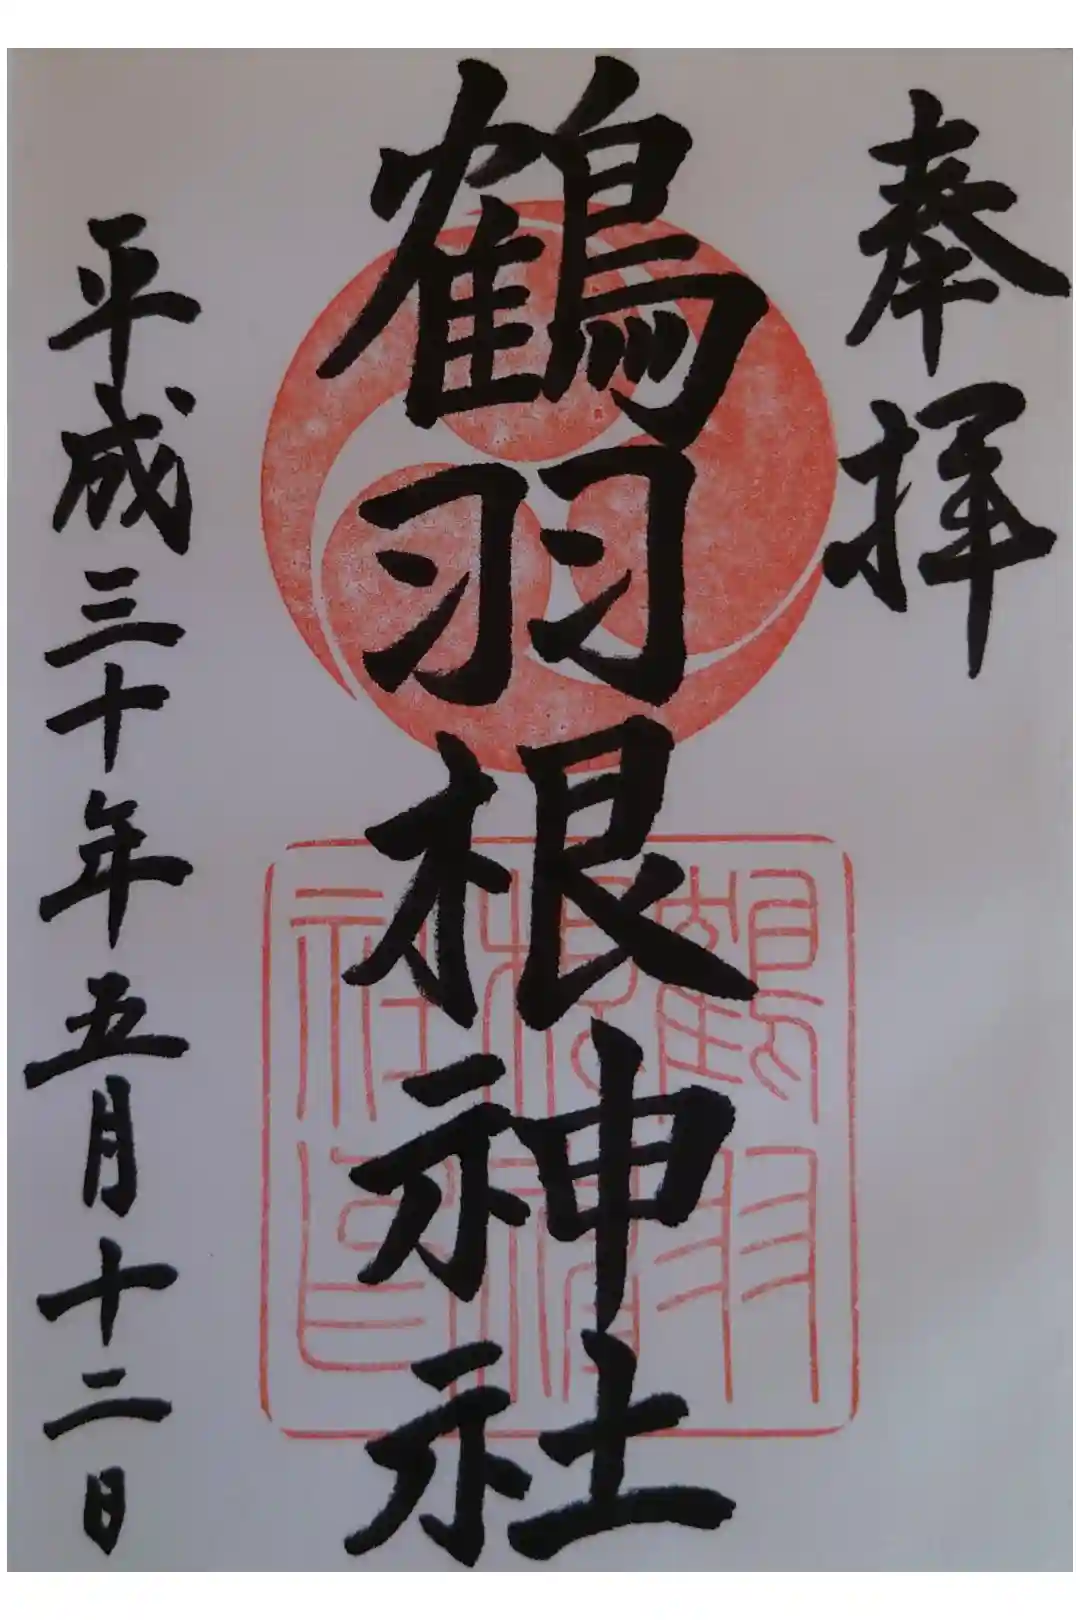 奉拝
鶴羽根神社
平成三十年五月十二日
鶴羽
根神
社印